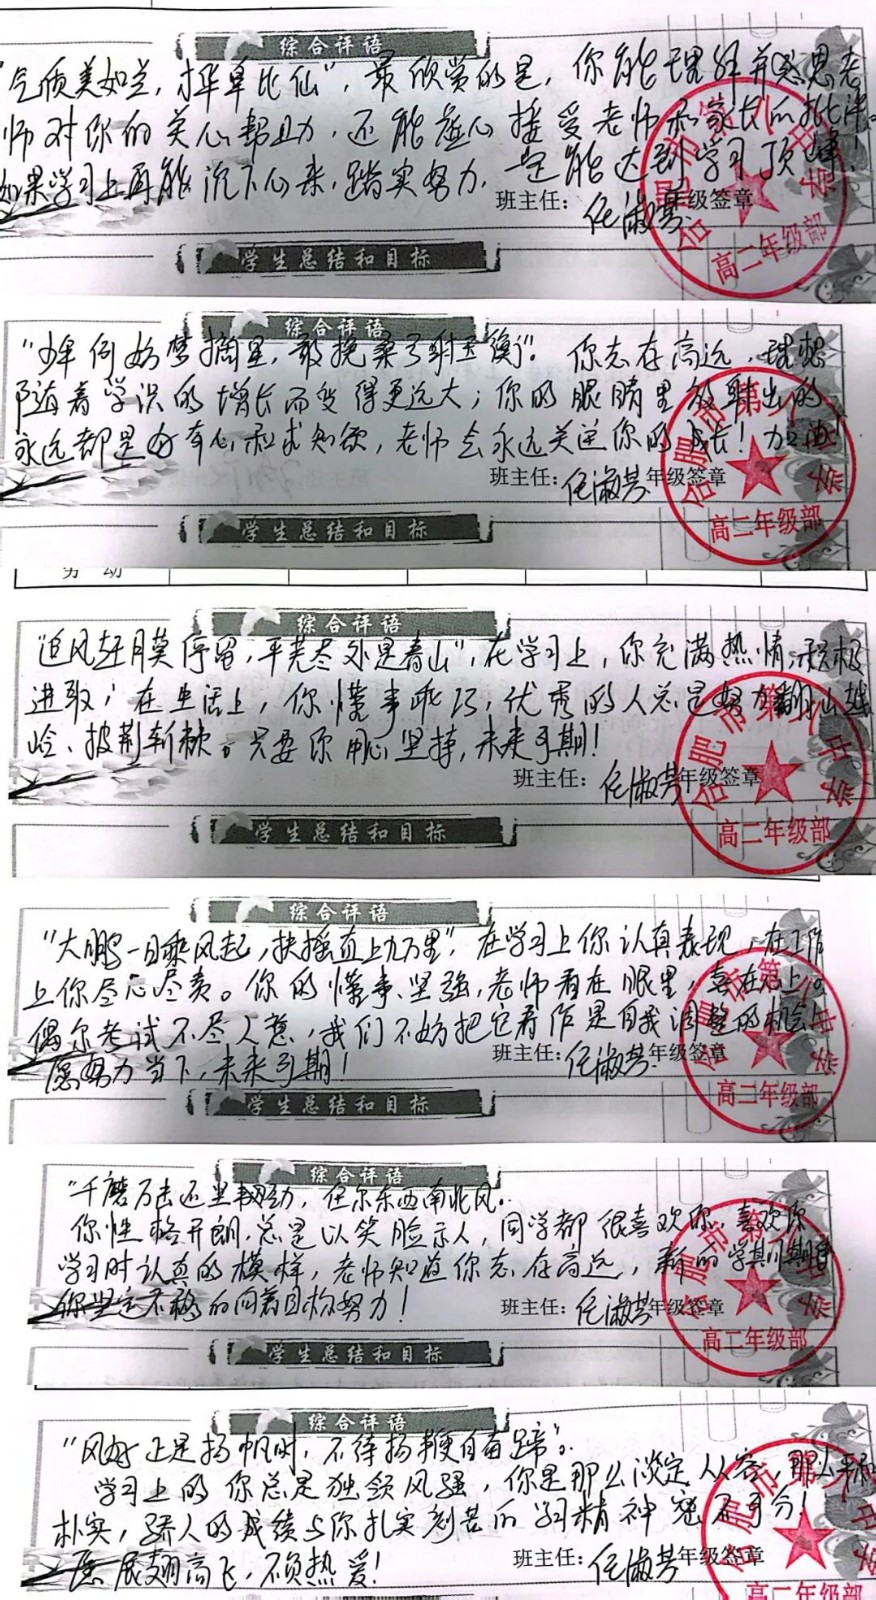 综合评语
"气质美如兰,才华阜比仙",最欣赏的是,你能理解并感恩老
师对你的关心帮助,还能虚心接受老师和家长的批评。
如果学习上再能沉下心来,踏实努力,定能达到学习顶峰!
班主任: 任淑芳 年级签章
合肥市第八中学
高二年级部
学生总结和目标
综合评语
"少年何妨梦摘星,敢挽桑弓射玉衡"。你志存高远,理想
随着学识的增长而变得更远大;你的眼睛里放射出的
永远都是好奇心和求知欲,老师会永远关注你的成长!加油!
班主任: 任淑芳 年级签章
合肥市第八中学
高二年级部
学生总结和目标
劳 动
综合评语
"追风赶月莫停留,平芜尽处是春山",在学习上,你充满热情,积极
进取;在生活上,你懂事乖巧,优秀的人总是努力翻山越
岭、披荆斩棘。只要你用心坚持,未来可期!
班主任: 任淑芳 年级签章
合肥市第八中学
高二年级部
学生总结和目标
综合评语
"大鹏一日乘风起,扶摇直上九万里",在学习上你认真表现,在工作
上你尽心尽责。你的懂事、坚强,老师看在眼里,喜在心上。
偶尔考试不尽人意,我们不妨把它看作是自我调整的机会!
愿努力当下,未来可期!
班主任: 任淑芳 年级签章
合肥市第八中学
高二年级部
学生总结和目标
综合评语
"千磨万击还坚韧劲,任尔东西南北风。
你性格开朗,总是以笑脸示人,同学都很喜欢你,喜欢你
学习时认真的模样,老师知道你志存高远,新的学期期望
你坚定不移的向着目标努力!
班主任: 任淑芳 年级签章
合肥市第八中学
高二年级部
学生总结和目标
综合评语
"风好正是扬帆时,不待扬鞭自奋蹄"。
学习上的你总是独领风骚,你是那么淡定从容,那么平和
朴实,骄人的成绩与你扎实刻苦的学习精神密不可分!
愿展翅高飞,不负热爱!
班主任: 任淑芳 年级签章
合肥市第八中学
高二年级部